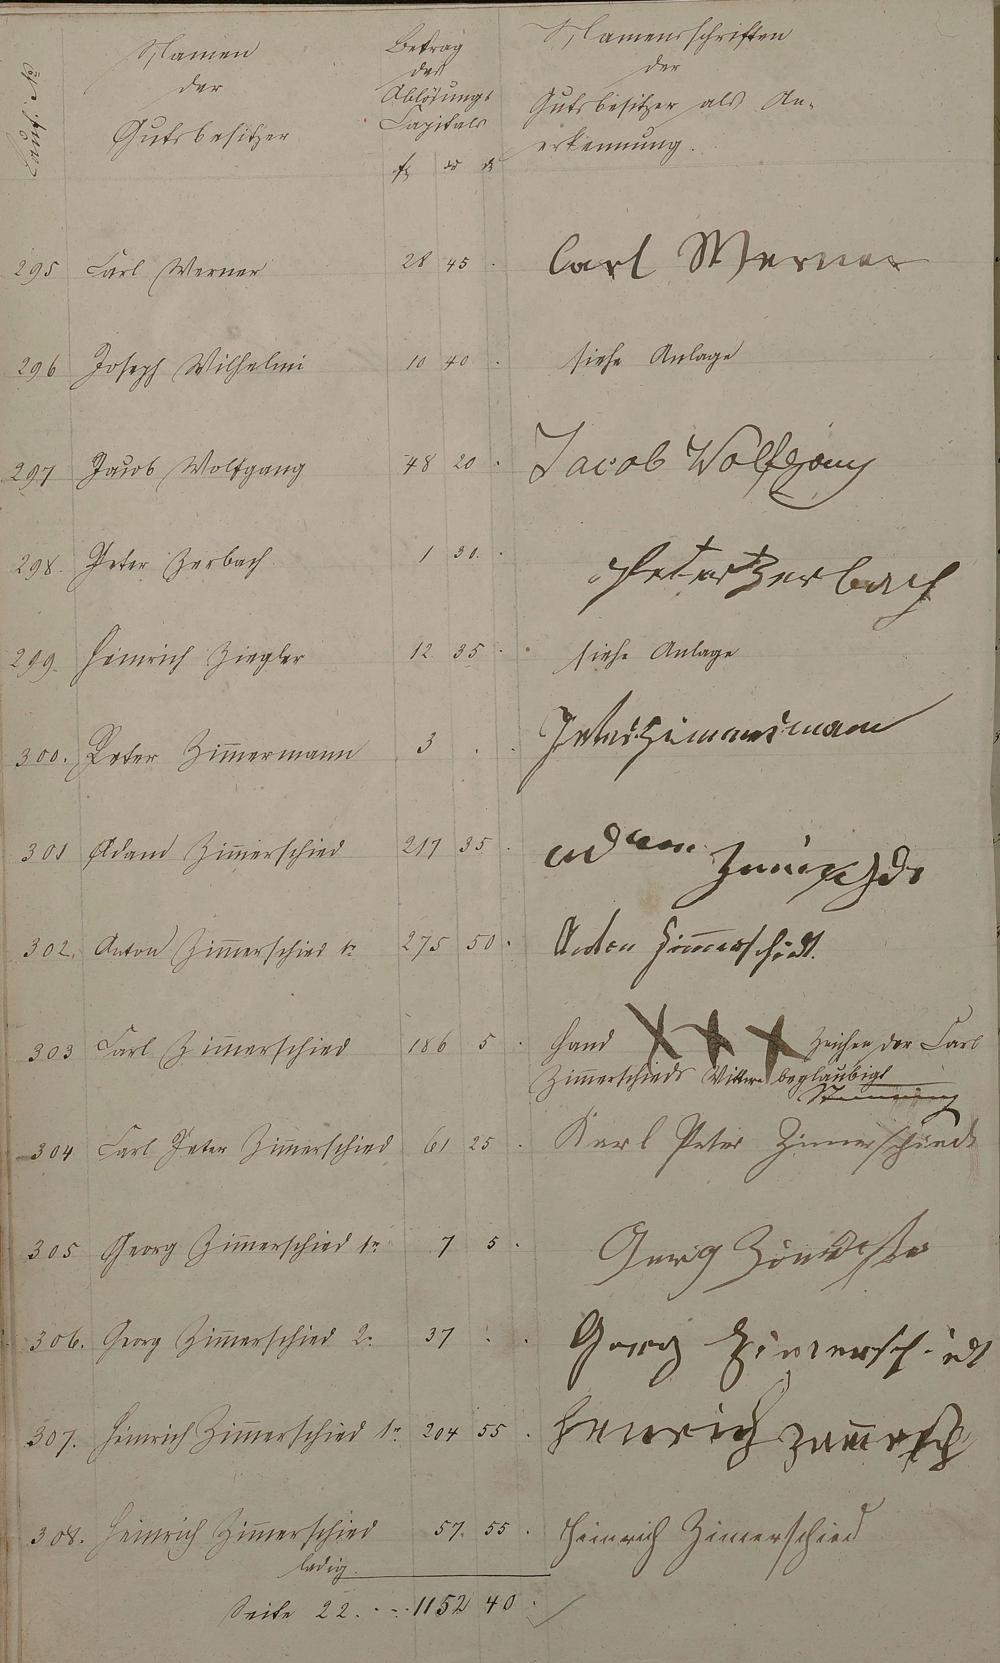 Namen
der
Gutsbesitzer
Betrag
des
Ablösungs
Capitals
fl xr
Namensschriften
der
Gutsbesitzer als An-
erkennung.
295 Carl Werner 28 45 . Carl Werner
296 Joseph Wilhelmi 10 40 . siehe Anlage
297 Jacob Wolfgang 48 20 . Jacob Wolfgang
298. Peter Zerbach 1 30. . Peter Zerbach
299. Heinrich Ziegler 12 35 . siehe Anlage
300. Peter Zim̄ermann 3 . . Peter Zimmermann
301 Adam Zim̄erschied 217 35 . adam
302. Anton Zim̄erschied 1r 275 50 . Anton Zim̄erschidt.
303 Carl Zim̄erschied 186 5 . Hand XXX Zeichen der Carl
Zim̄erschieds Wittwe beglaubigt
304 Carl Peter Zim̄erschied 61 25 . Karl Peter Zimerschied
305 Georg Zim̄erschied 1r 7 5 . Georg
306. Georg Zim̄erschied 2r 37 . . Georg Zimerschidt
307. Heinrich Zim̄erschied 1r 204 55 . Henrich
308. Heinrich Zim̄erschied 57. 55 . Heinrich Zimerschied
ledig.
Seite 22. 1152 40 .